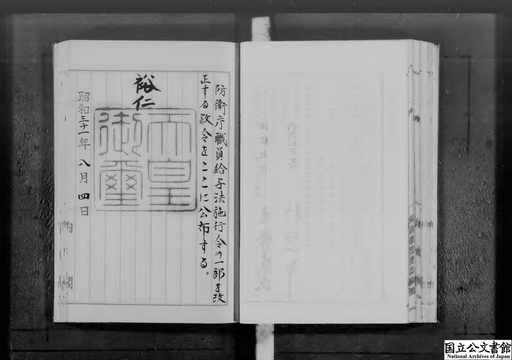 防衛庁職員給与法施行令の一部を改
正する政令をここに公布する。
裕仁
天皇
御璽
昭和三十一年八月四日
内閣
国立公文書館
National Archives of Japan